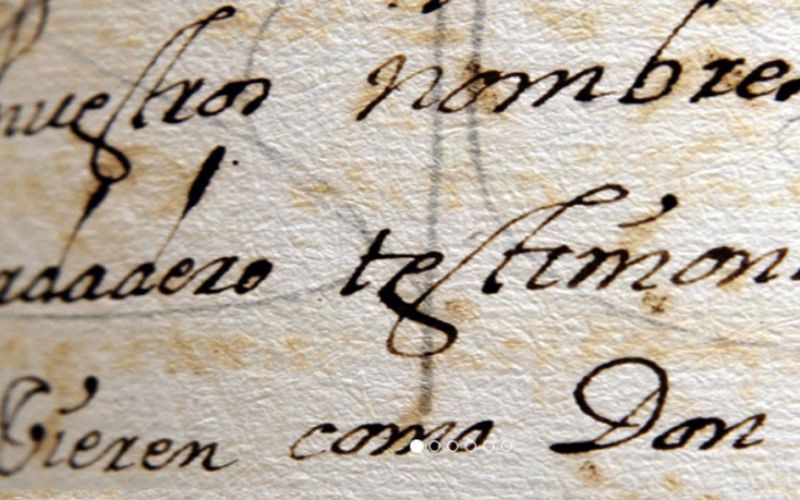 nuestros nombres
adadero testimoni
Vieren como Don